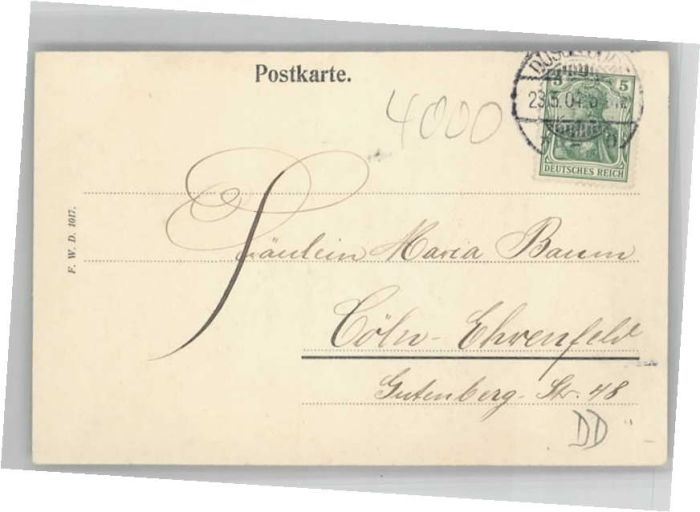 Postkarte.
4000
5
DEUTSCHES REICH
F. W. D. 1017.
Fräulein Maria Baum
Cöln-Ehrenfeld
Gutenberg-Str. 48
DD